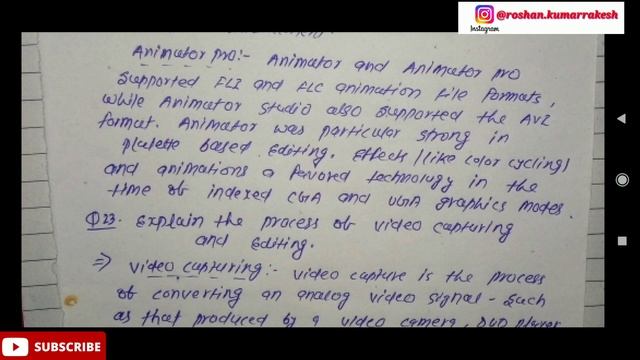 @roshan.kumarrakesh
Instagram
Animator pro:- Animator and Animator pro
Supported FLI and FLC animation file formats,
while Animator Studio also Supported the AVI
format. Animator was particular strong in
palette based Editing. Effects (like color cycling)
and animations a favored technology in the
time of indexed CGA and VGA graphics modes.
Q23. Explain the process of video capturing
and Editing.
⇒ Video capturing:- video capture is the process
of converting an analog video signal - Such
as that produced by a video camera, DVD player
SUBSCRIBE